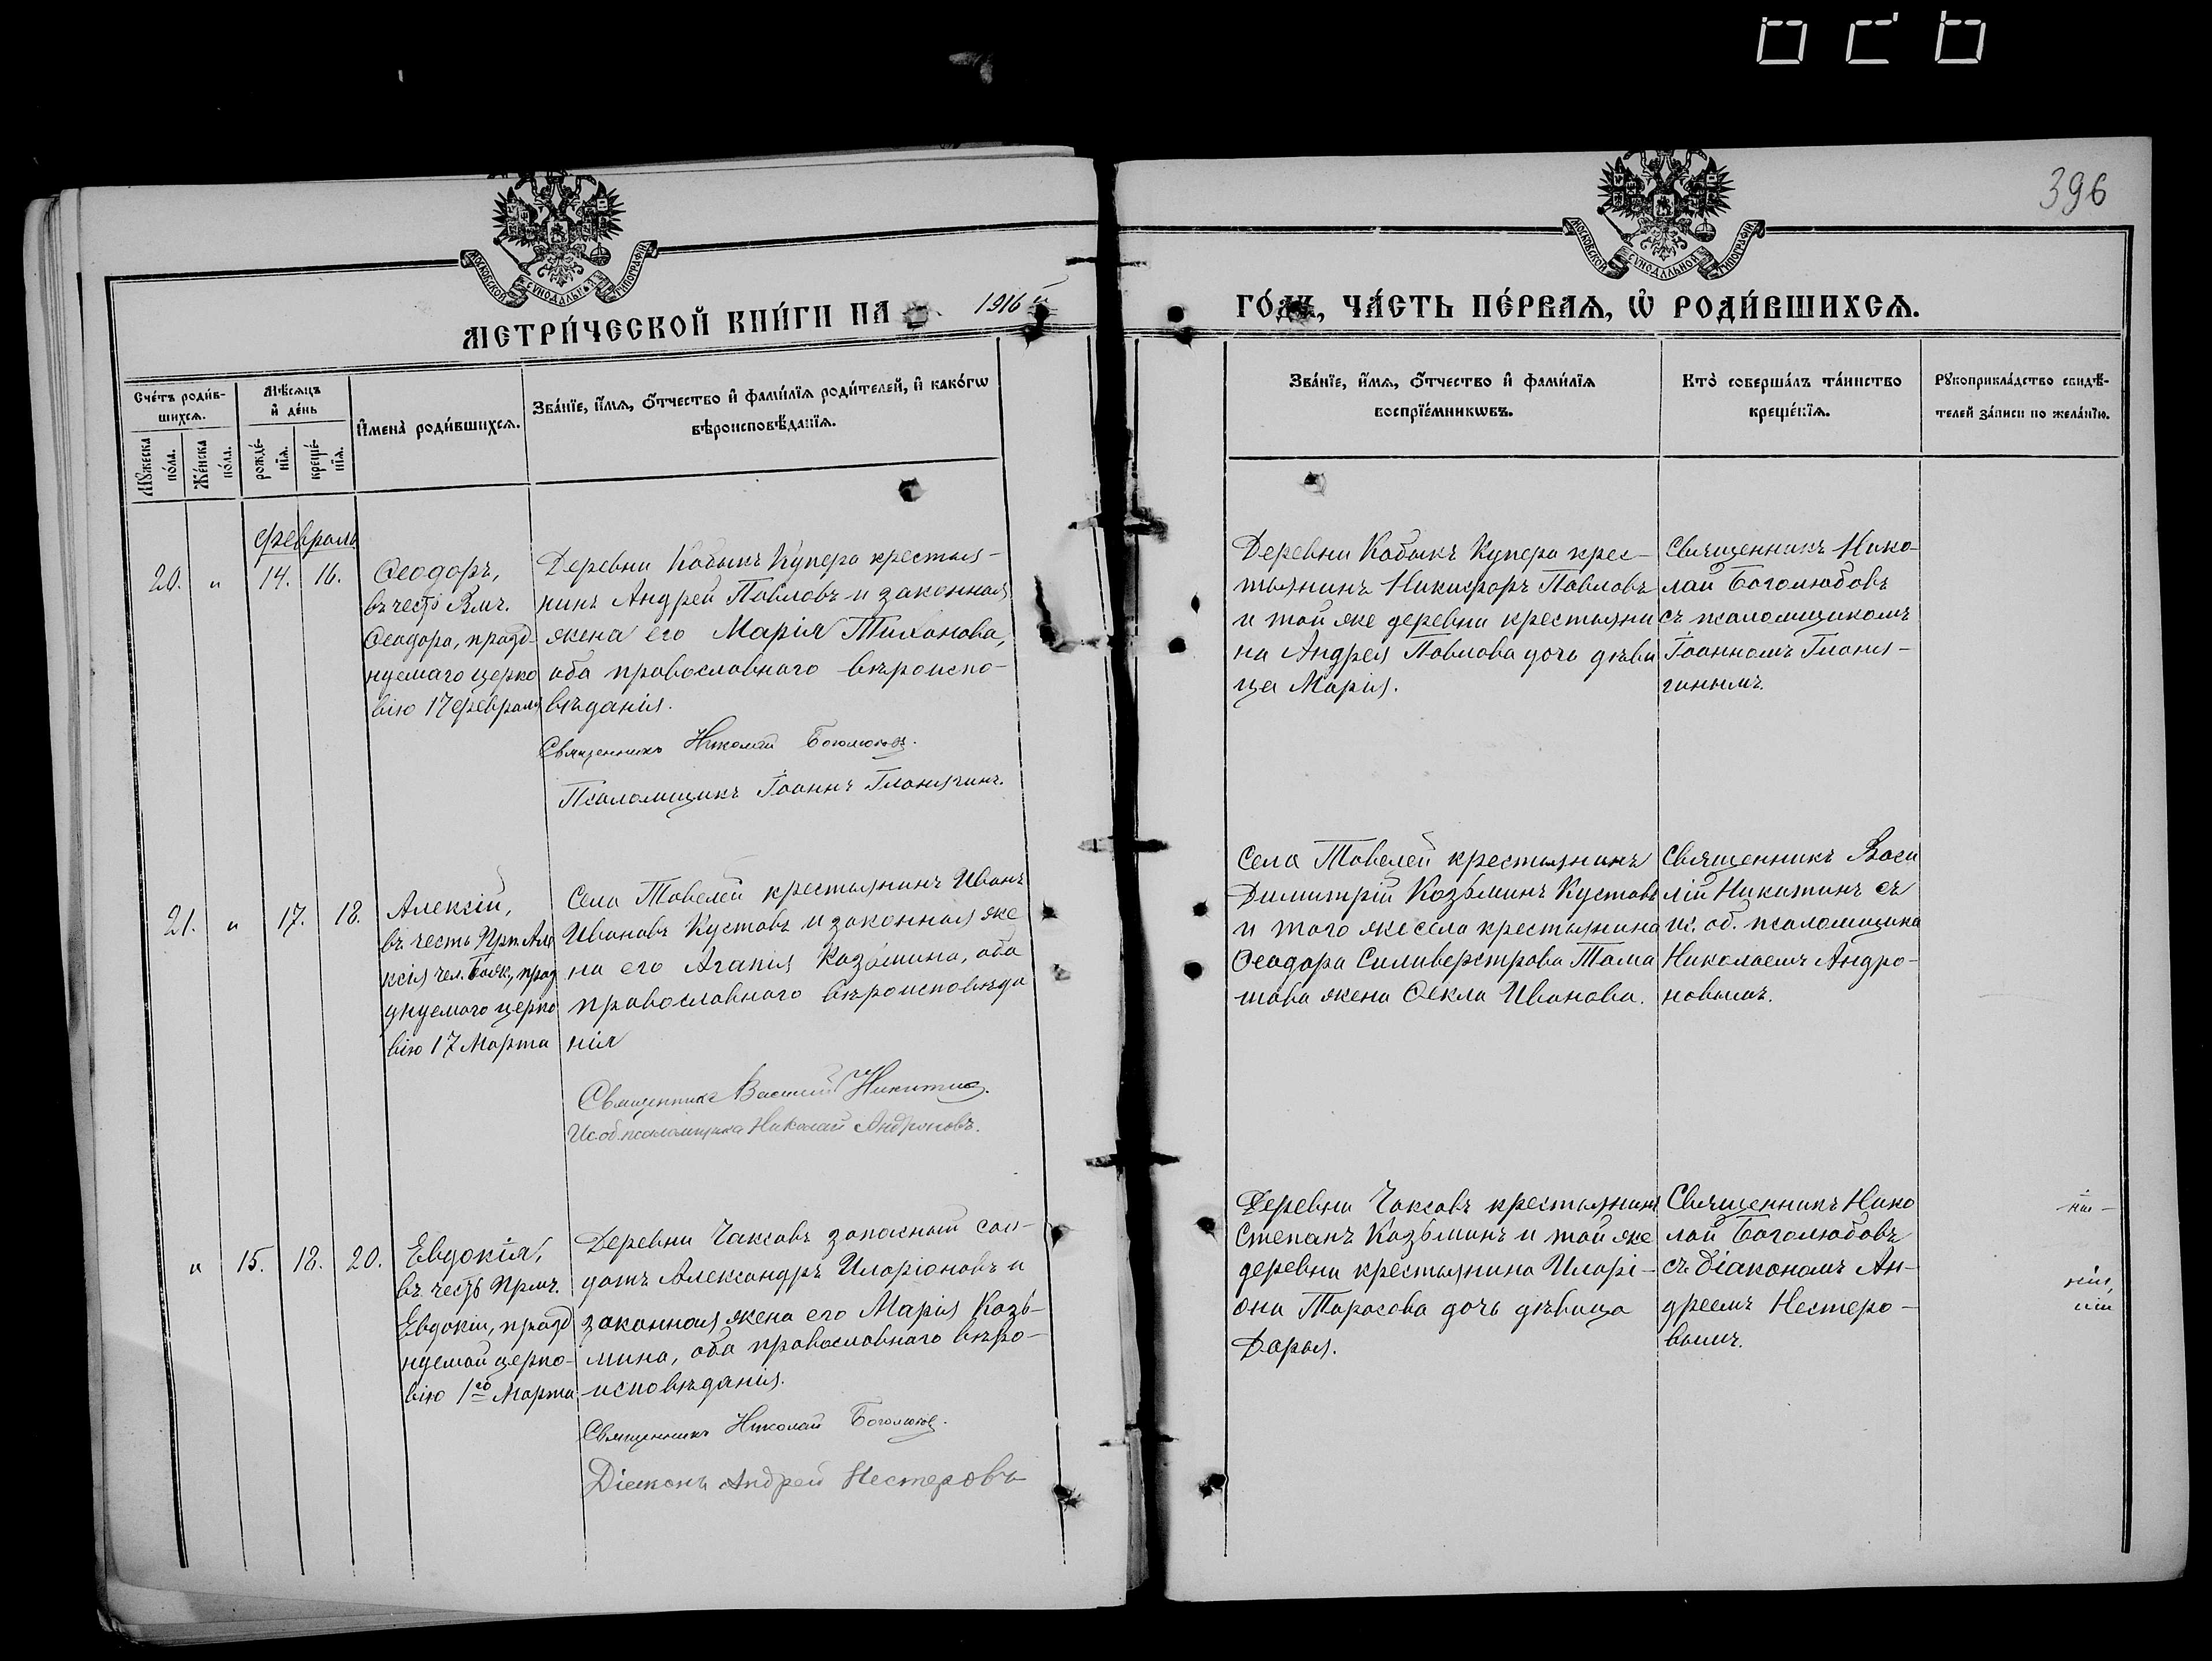 396
МОСКОВСКОЙ СѴНОДАЛЬНОЙ ТИПОГРАФІИ
МОСКОВСКОЙ СѴНОДАЛЬНОЙ ТИПОГРАФІИ
МЕТРИ́ЧЕСКОЙ КНИ́ГИ НА 1916 й
ГО́ДЪ, ЧА́СТЬ ПЕ́РВАѦ, Ѡ҆ РОДИ́ВШИХСѦ.
Сче́тъ роди́в-
шихсѧ.
Мꙋ́жеска
по́ла.
Же́нска
по́ла.
Мѣ́сѧцъ
и҆ де́нь
рожде́-
нїѧ.
креще́-
нїѧ.
И҆мена̀ роди́вшихсѧ.
Зва́нїе, и҆́мѧ, ѻ҆́тчество и҆ фами́лїѧ роди́телей, и҆ како́гѡ
вѣроисповѣ́данїѧ.
Зва́нїе, и҆́мѧ, ѻ҆́тчество и҆ фами́лїѧ
воспрїе́мникѡвъ.
Кто̀ соверша́лъ та́инство
креще́нїѧ.
Рꙋкоприкла́дство свидѣ́-
телей за́писи по жела́нїю.
Февраль
20. " 14. 16.
Ѳеодоръ,
въ честь Вмч.
Ѳеодора, празд-
нуемаго церко
вію 17 февраля
Деревни Кобыкъ Купера крестья-
нинъ Андрей Павловъ и законная
жена его Марія Тиханова,
оба православнаго вѣроиспо-
вѣданія.
Священникъ Николай Боголюбовъ.
Псаломщикъ Іоаннъ
Деревни Кобыкъ Купера крес-
тьянинъ Никифоръ Павловъ
и той же деревни крестьяни
на Андрея Павлова дочь дѣви
ца Марія.
Священникъ Нико-
лай Боголюбовъ
съ псаломщикомъ
Іоанномъ
21. " 17. 18.
Алексій,
въ честь Прп. Але
ксія чел. Бож., праз
днуемаго церко
вію 17 Марта
Села Тавелей крестьянинъ Иванъ
Ивановъ Кустовъ и законная же
на его Агапія Козьмина, оба
православнаго вѣроисповѣда
нія
Священникъ Василій Никитинъ.
Ис. об. псаломщика Николай Андроновъ.
Села Тавелей крестьянинъ
Димитрій Козьминъ Кустовъ
и того же села крестьянина
Ѳеодора Силиверстрова Тома
шова жена Ѳекла Иванова.
Священникъ Васи
лій Никитинъ съ
и. об. псаломщика
Николаемъ Андро-
новымъ.
" 15. 18. 20.
Евдокія,
въ честь Прмч.
Евдокіи, празд
нуемой церко-
вію 1го Марта
Деревни Чаксовъ запасный сол-
датъ Александръ Иларіоновъ и
законная жена его Марія Козь-
мина, оба православнаго вѣро-
исповѣданія.
Священникъ Николай Боголюбовъ.
Діаконъ Андрей Нестеровъ
Деревни Чаксовъ крестьянинъ
Степанъ Козьминъ и той же
деревни крестьянина Иларі-
она Тарасова дочь дѣвица
Дарья.
Священникъ Нико
лай Боголюбовъ
съ діакономъ Ан-
дреемъ Нестеро-
вымъ.